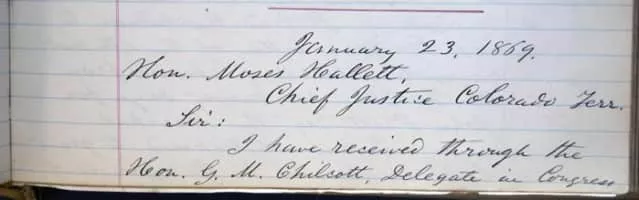 January 23, 1869.
Hon. Moses Hallett,
Chief Justice Colorado Terr.
Sir:
I have received through the
Hon. G. M. Chilcott, Delegate in Congress